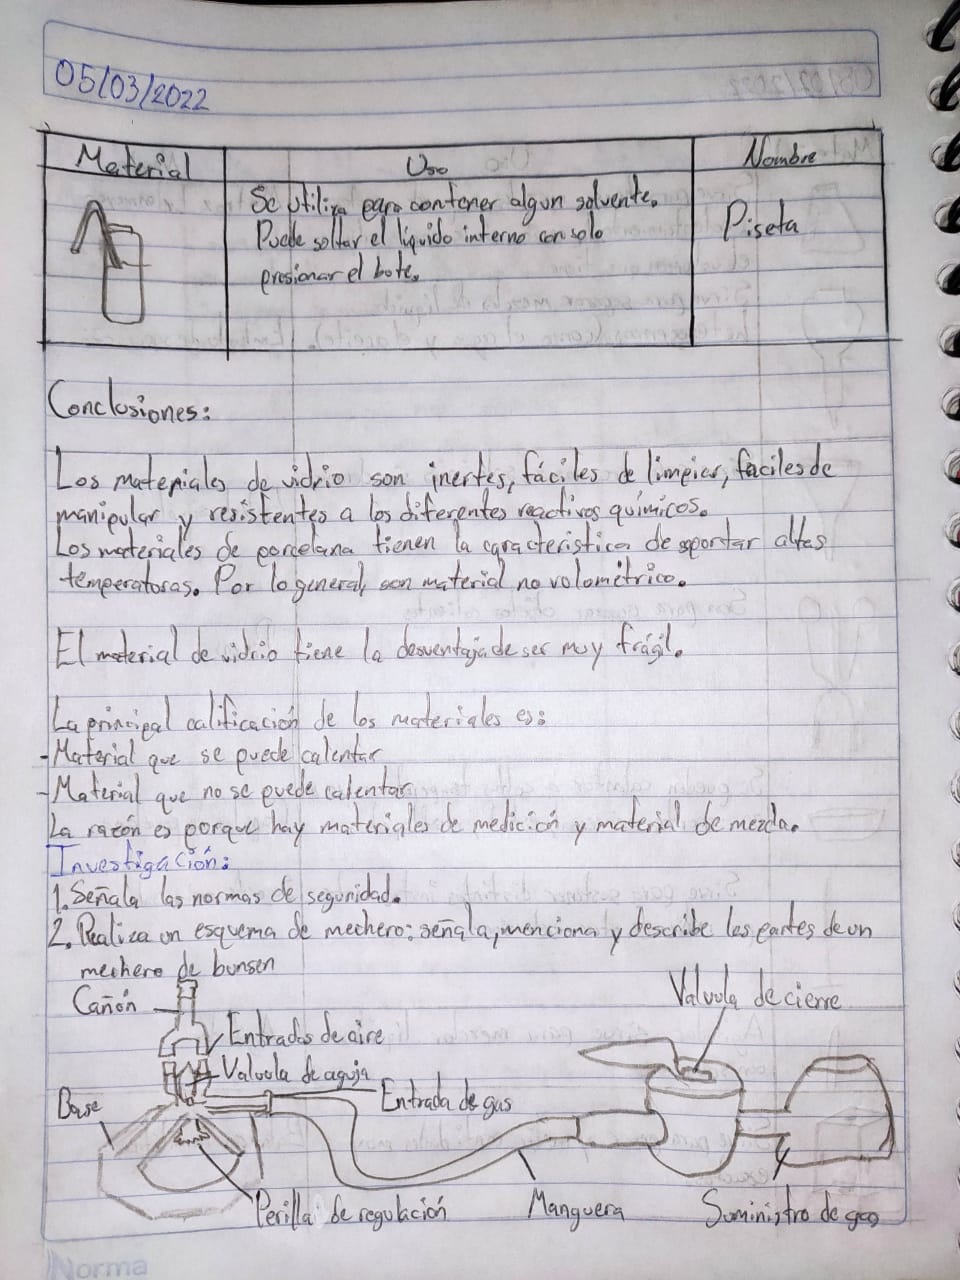 05/03/2022
Material
Uso
Nombre
Se utiliza para contener algun solvente.
Puede soltar el líquido interno con solo
presionar el bote.
Piseta
Conclusiones:
Los materiales de vidrio son inertes, fáciles de limpiar, faciles de
manipular y resistentes a los diferentes reactivos químicos.
Los materiales de porcelana tienen la caracteristica de soportar altas
temperaturas. Por lo general, son material no volométrico.
El material de vidrio tiene la desventaja de ser muy frágil.
La principal calificación de los materiales es:
- Material que se puede calentar
- Material que no se puede calentar
La razón es porque hay materiales de medición y material de mezcla.
Investigación:
1. Señala las normas de seguridad.
2. Realiza un esquema de mechero: señala, menciona y describe las partes de un
mechero de bunsen
Cañón
Valvula de cierre
Entradas de aire
Valvula de aguja
Base
Entrada de gas
Perilla de regulación
Manguera
Suministro de gas
Norma